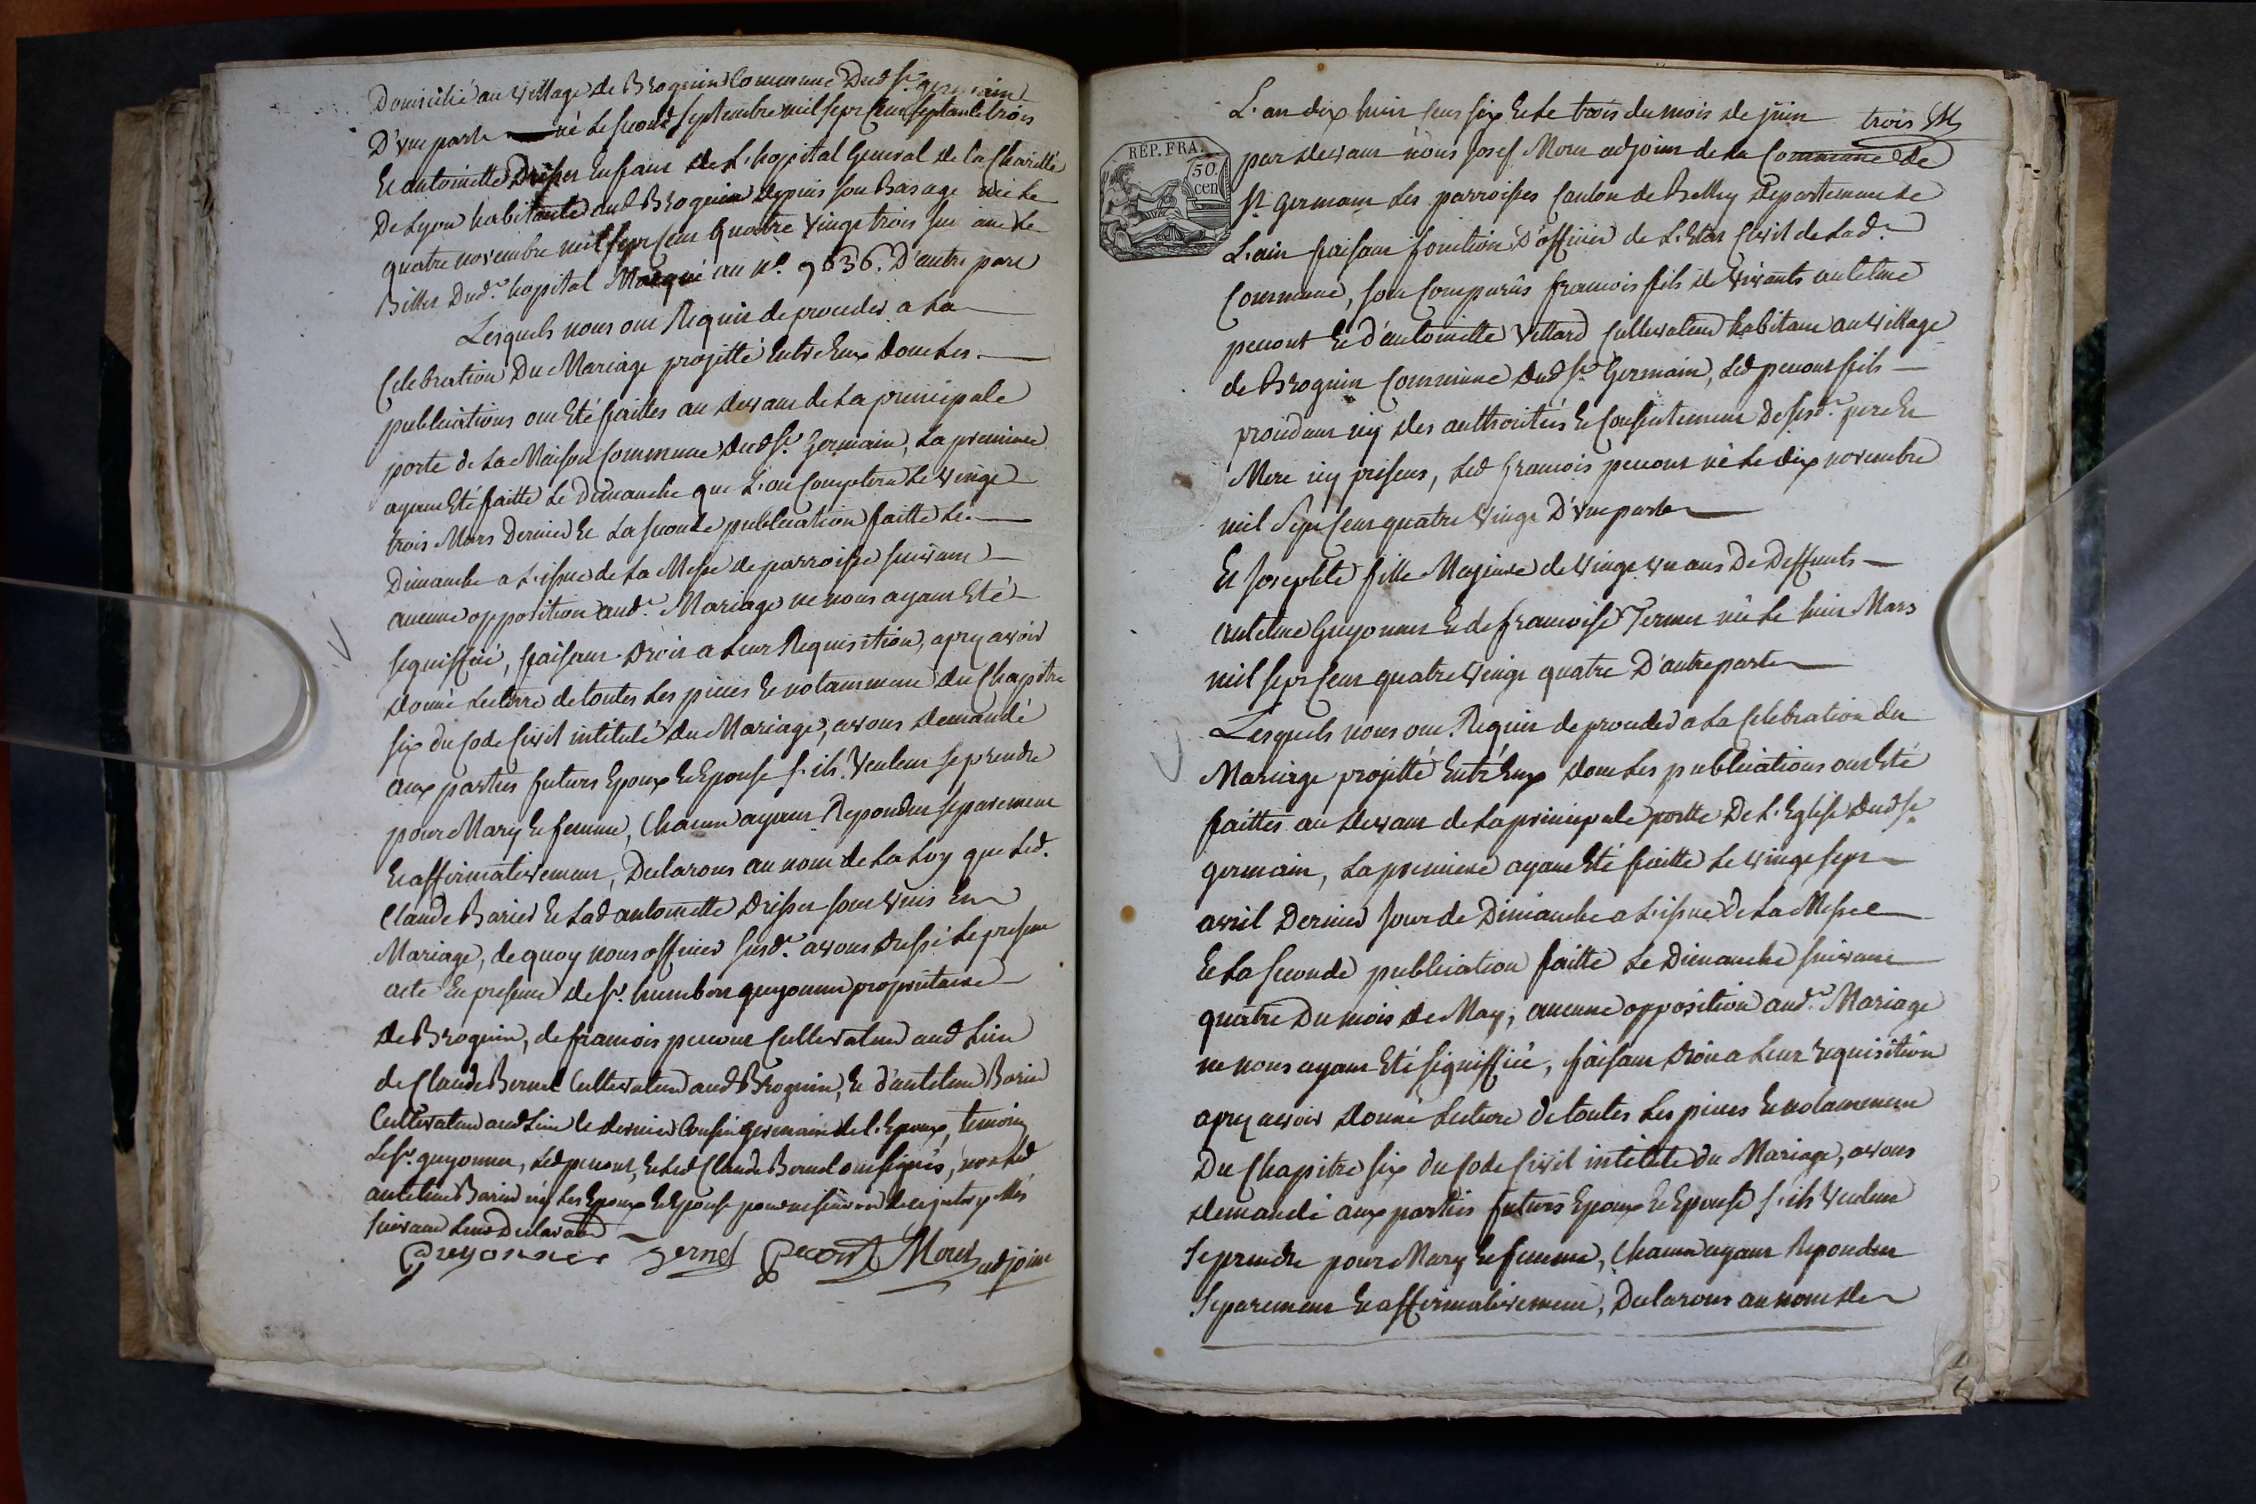 Domicilié au village de Brognin Commune Dud St germain
D'une part né Le second septembre mil sept cent septante trois
Et antoinette Drisser Enfant de L'hopital General de la Charitté
De Lyon habitante aud Brognin depuis son Bas age née Le
quatre novembre mil sept cent quatre vingt trois sur ane Le
Billet Dud.t hopital Marqué au n.o 9636. D'autre part
Lesquels nous ont Requis de proceder a La
Celebration Du Mariage projetté Entre Eux dont Les
publications ont Eté faittes au devant de La principale
porte de La Maison Commune dud St Germain, La premiere
ayant Eté faitte Le Dimanche que L'on Comptera Le vingt
trois Mars Dernier Et La seconde publication faitte Le
Dimanche a L'issue de La Messe de parroisse suivant
aucune opposition aud.t Mariage ne nous ayant Eté
signiffiée, faisant droit a Leur Requisition, apres avoir
donné Lecture de toutes Les pieces Et notamment du Chapitre
six du Code Civil intitulé du Mariage, avons demandé
aux parties futurs Epoux Et Epouse s'ils veulent se prendre
pour Mary Et femme, Chacun ayant Repondu separement
Et affirmativement, Declarons au nom de La Loy que Led.
Claude Barier Et Lad antoinette Drisser sont unis En
Mariage, de quoy nous officier susd.t avons dressé Le present
acte En presence de sr. humbert guyonnet propriétaire
de Brognin, de francois pecout Cultivateur aud Lieu
de Claude Bernel Cultivateur aud Brognin, Et d'antelme Barier
Cultivateur aud Lieu le dernier Cousin germain de l'Epoux, temoins
Le sr guyonnet, Led pecout, Et Led Claude Bernel ont signés, non Led
antelme Barier ny Les Epoux Et Epouse pour ne sçavoir de ce interpellés
suivant Leur Declaration
Guyonnet Bernel Pecout Moret adjoint
L'an dix huit cent six Et Le trois du mois de juin trois
REP. FRA.
50.
cen
par devant nous Josef Moret adjoint de La Commune de
St germain Les parroisses Canton de Belley departement de
L'ain faisant fonction d'officier de L'Etat Civil de Lad.e
Commune, sont Comparûs francois fils de vivants antelme
pecout Et d'antoinette Vettard Cultivateur habitant au village
de Brognin Commune dud St Germain, Led pecout fils
procedant icy des authorités Et Consentement de sesd.t pere Et
Mere icy presens, Led francois pecout né Le dix novembre
mil sept cent quatre vingt D'une part
Et Josephte fille Majeure de vingt un ans De Deffunts
antelme Guyonnet Et de francoise Vernet née Le huit Mars
mil sept cent quatre vingt quatre D'autre part
Lesquels nous ont Requis de proceder a La Celebration du
Mariage projetté Entr'Eux dont Les publications ont Eté
faittes au devant de La principale portte De L'Eglise dud St
germain, La premiere ayant Eté faitte Le vingt sept
avril Dernier Jour de Dimanche a L'issue de La Messe
Et La seconde publication faitte Le Dimanche suivant
quatre Du mois de May, aucune opposition aud.t Mariage
ne nous ayant Eté signiffiée, faisant droit a Leur requisition
apres avoir donné Lecture de toutes Les pieces Et notamment
Du Chapitre six du Code Civil intitulé du Mariage, avons
demandé aux parties futurs Epoux Et Epouse s'ils veulent
se prendre pour Mary Et femme, Chacun ayant Repondu
Separement Et affirmativement, Declarons au nom de